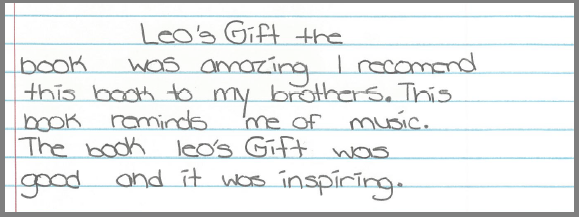 Leo's Gift the
book was amazing I recomend
this book to my brothers. This
book reminds me of music.
The book leo's Gift was
good and it was inspiring.